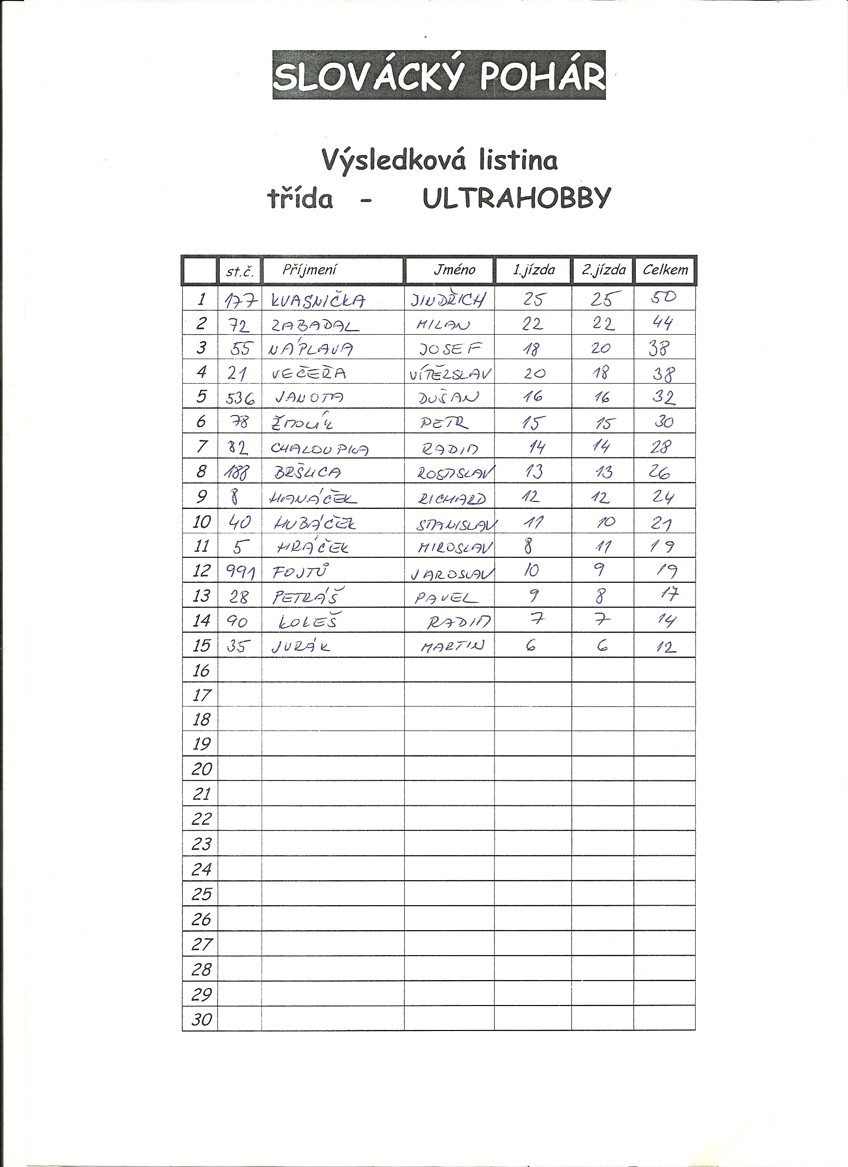 SLOVÁCKÝ POHÁR
Výsledková listina
třída - ULTRAHOBBY
st.č. Příjmení Jméno 1.jízda 2.jízda Celkem
1 177 KVASNIČKA JINDŘICH 25 25 50
2 72 ZABADAL MILAN 22 22 44
3 55 NÁPLAVA JOSEF 18 20 38
4 21 VEČEŘA VÍTĚZSLAV 20 18 38
5 536 JANOTA DUŠAN 16 16 32
6 78 PETR 15 15 30
7 82 CHALOUPKA RADIM 14 14 28
8 188 BRŠLICA ROSTISLAV 13 13 26
9 8 HANÁČEK RICHARD 12 12 24
10 40 HUBÁČEK STANISLAV 11 10 21
11 5 HRÁČEK MIROSLAV 8 11 19
12 991 FOJTŮ JAROSLAV 10 9 19
13 28 PETRÁŠ PAVEL 9 8 17
14 90 KOLEŠ RADIM 7 7 14
15 35 JURÁK MARTIN 6 6 12
16
17
18
19
20
21
22
23
24
25
26
27
28
29
30